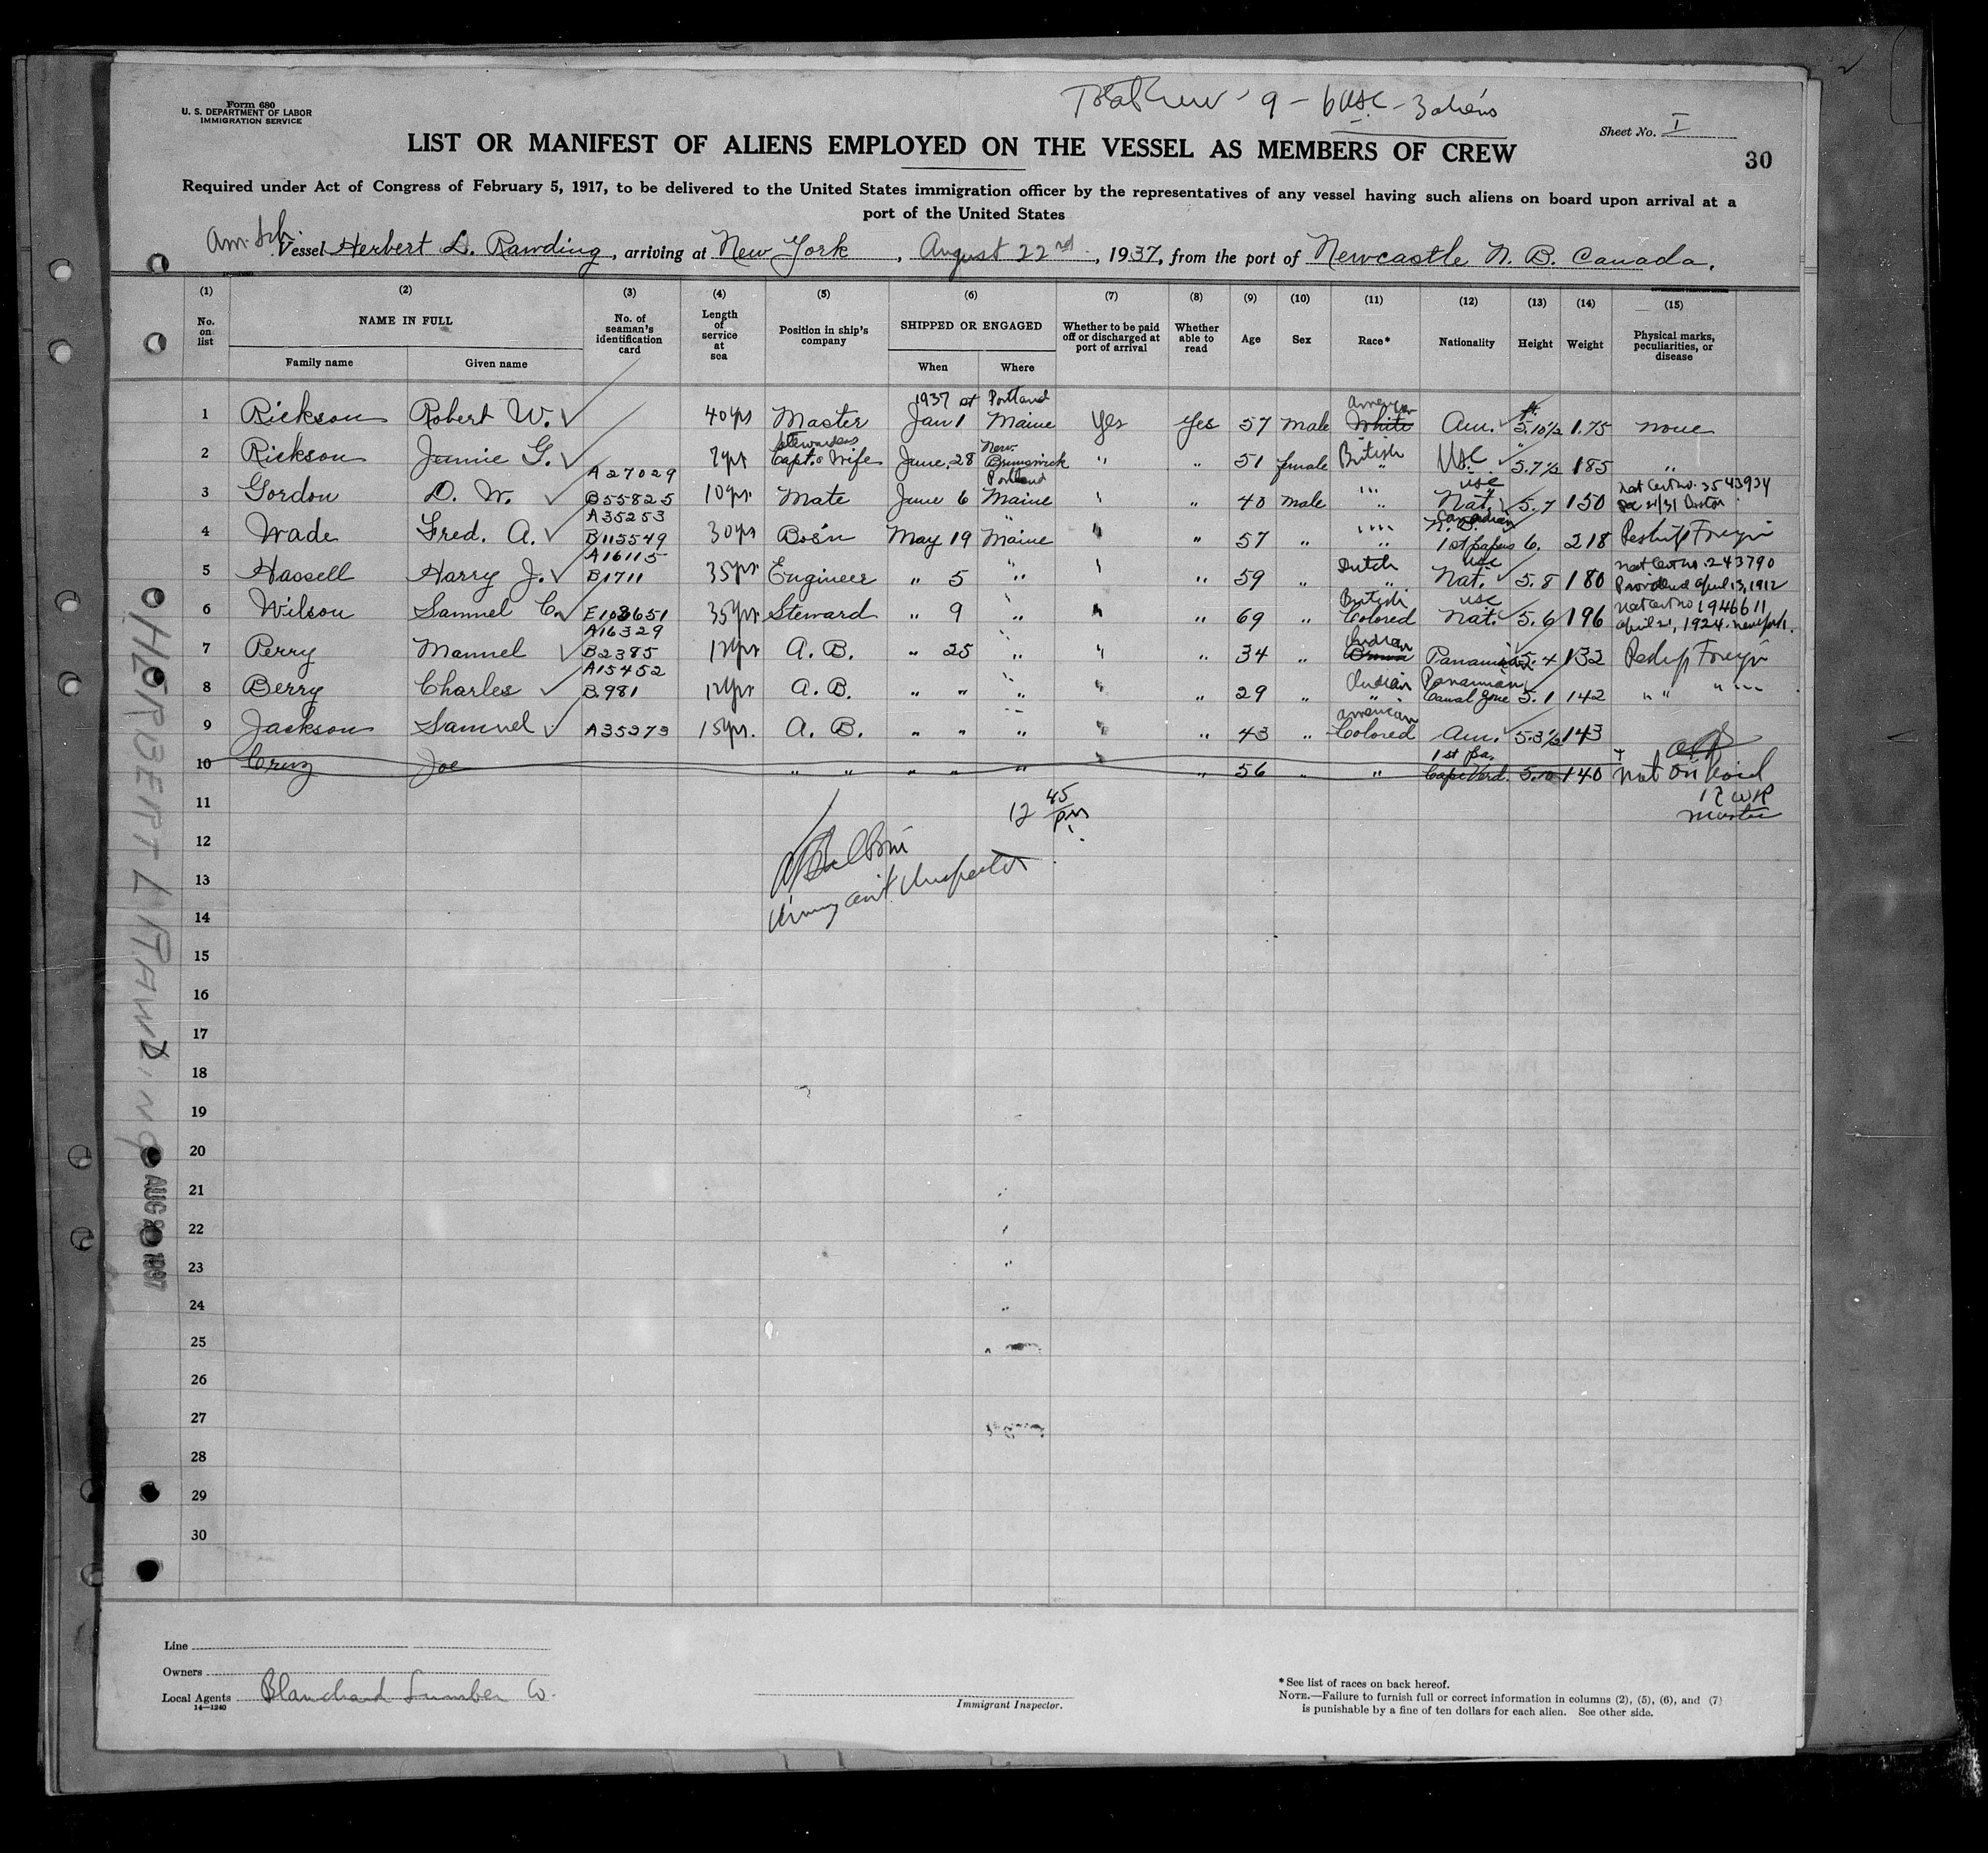 Form 680
U. S. DEPARTMENT OF LABOR
IMMIGRATION SERVICE
Total Crew - 9 - 6 USC - 3 aliens
Sheet No. I
30
LIST OR MANIFEST OF ALIENS EMPLOYED ON THE VESSEL AS MEMBERS OF CREW
Required under Act of Congress of February 5, 1917, to be delivered to the United States immigration officer by the representatives of any vessel having such aliens on board upon arrival at a
port of the United States
Am. Sch. Vessel Herbert L. Rawding, arriving at New York, August 22nd, 1937, from the port of Newcastle N. B. Canada.
(1) (2) (3) (4) (5) (6) (7) (8) (9) (10) (11) (12) (13) (14) (15)
No. on list
NAME IN FULL
Family name Given name
No. of seaman's identification card
Length of service at sea
Position in ship's company
SHIPPED OR ENGAGED
When Where
Whether to be paid off or discharged at port of arrival
Whether able to read
Age Sex Race* Nationality Height Weight
Physical marks, peculiarities, or disease
1937 at Portland American ft.
1 Rickson Robert W. 40 yrs Master Jan 1 Maine Yes Yes 57 Male White Am. 5.10½ 1.75 none
Stewardess New British
2 Rickson Jennie G. 7 yrs Capt.s Wife June. 28 Brunswick " " 51 female " USC 5.7½ 185 "
A 27029 Portland " USC Nat Cert no. 3543934
3 Gordon D. W. B55825 10 yrs. Mate June 6 Maine " 40 male " Nat. 5.7 150
A35253 " Canadian
4 Wade Fred. A. B115549 30 yrs Bos'n May 19 Maine " " 57 " 1st papers 6. 218 Reship Foreign
A16115 Dutch USC Nat Cert no. 243790
5 Hassell Harry J. B1711 35 yrs Engineer " 5 " " 59 " " Nat. 5.8 180 Providence April 13, 1912
British USC Nat Cert no 1946611
6 Wilson Samuel C. E108651 35 yrs Steward " 9 " " " 69 " Colored Nat. 5.6 196 April 21, 1924. New York.
A16329 Indian
7 Perry Manuel B2385 12 yrs A. B. " 25 " " " 34 " Brown Panamian 5.4 132 Reship Foreign
A15452 Indian Panamian
8 Berry Charles B.981 12 yrs A. B. " " " " 29 " " Canal Zone 5.1 142 " " " "
American
9 Jackson Samuel A35273 15 yrs. A. B. " " " " " 43 " Colored Am. 5.3½ 143
1st Pa.
10 Cruz Joe " " " " " " 56 " " Cape Verd. 5.10 140 Not on board
R W R
Master
11
12 45
pm
12
13
Immigrant Inspector
14
15
16
17
18
19
20
21
22
23
24
25
26
27
28
29
30
HERBERT L RAWDING
AUG 1937
Line
Owners
Local Agents Blanchard Lumber Co.
14—1240
Immigrant Inspector.
* See list of races on back hereof.
NOTE.—Failure to furnish full or correct information in columns (2), (5), (6), and (7)
is punishable by a fine of ten dollars for each alien. See other side.